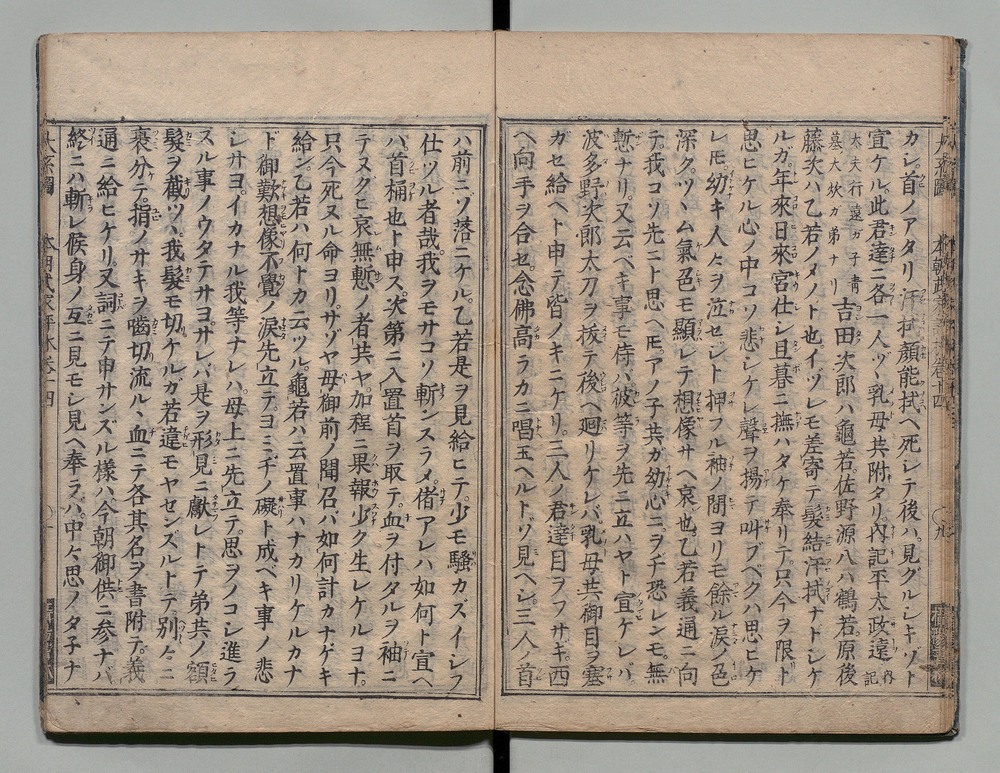 カレ。首ノアタリ汗拭顔能拭ヘ死シテ後ハ見グルシキゾト
宜ケル。此君達ニ各一人ヅヽ乳母共附タリ。内記平太政遠 内記
太夫行遠ガ子青
墓大炊ガ弟ナリ 吉田次郎ハ龜若。佐野源八ハ鶴若。原後
藤次ハ乙若ノメノト也。イヅレモ差寄テ髪結汗拭ナドシケ
ルガ。年來日來宮仕シ旦暮ニ撫ハタケ奉リテ。只今ヲ限ト
思ヒケル心ノ中コソ悲シケレ。聲ヲ揚テ叫ブベクハ思ヒケ
レ𪜈幼キ人々ヲ泣セジト押フル袖ノ間ヨリモ餘ル涙ノ色
深ク。ツヽム氣色モ顯レテ想像サヘ哀也。乙若義通ニ向
テ。我コソ先ニト思ヘ𪜈アノ子共ガ幼心ニヲヂ恐レンモ。無
慙ナリ。又云ベキ事モ侍バ。彼等ヲ先ニ立バヤト宣ケレバ。
波多野次郎太刀ヲ抜テ後ヘ廻リケレバ。乳母共御目ヲ塞
ガセ給ヘト申テ皆ノキニケリ。三人ノ君達目ヲフサキ。西
ヘ向手ヲ合セ。念佛高ラカニ唱玉ヘルトゾ見ヘシ。三人ノ首
ハ前ニゾ落ニケル。乙若是ヲ見給ヒテ。少モ騷カズイシフ
仕ツル者哉。我ヲモサコソ斬ンズラメ。偖アレハ如何ト宣ヘ
バ。首桶也ト申ス。次第ニ入置首ヲ取テ。血ヲ付タルヲ袖ニ
テヌグヒ。哀無慙ノ者共ヤ。加程ニ果報少ク生レケルヨナ。
只今死ヌル命ヨリ。サゾヤ母御前ノ聞召バ如何計カナゲキ
給ン。乙若ハ何トカ云ツル。龜若ハ云置事ハナカリケルカナ
ド御歎想像不覺ノ涙先立テ。ヨミヂノ礙ト成ベキ事ノ悲
シサヨ。イカナル我等ナレハ母上ニ先立テ。思ヲノコシ進ラ
スル事ノウタテサヨ。サレバ是ヲ形見ニ獻レトテ弟共ノ額
髮ヲ截ツヽ。我髮モ切ケルガ若違モヤセンズルトテ。別々ニ
褁分テ。指ノサキヲ噛切流ルヽ血ニテ各其名ヲ書附テ。義
通ニ給ヒケリ。又詞ニテ申サンズル樣ハ。今朝御供ニ参ナバ
終ニハ斬レ候身ノ互ニ見モシ見ヘ奉ラバ。中々思ノタ子ナ